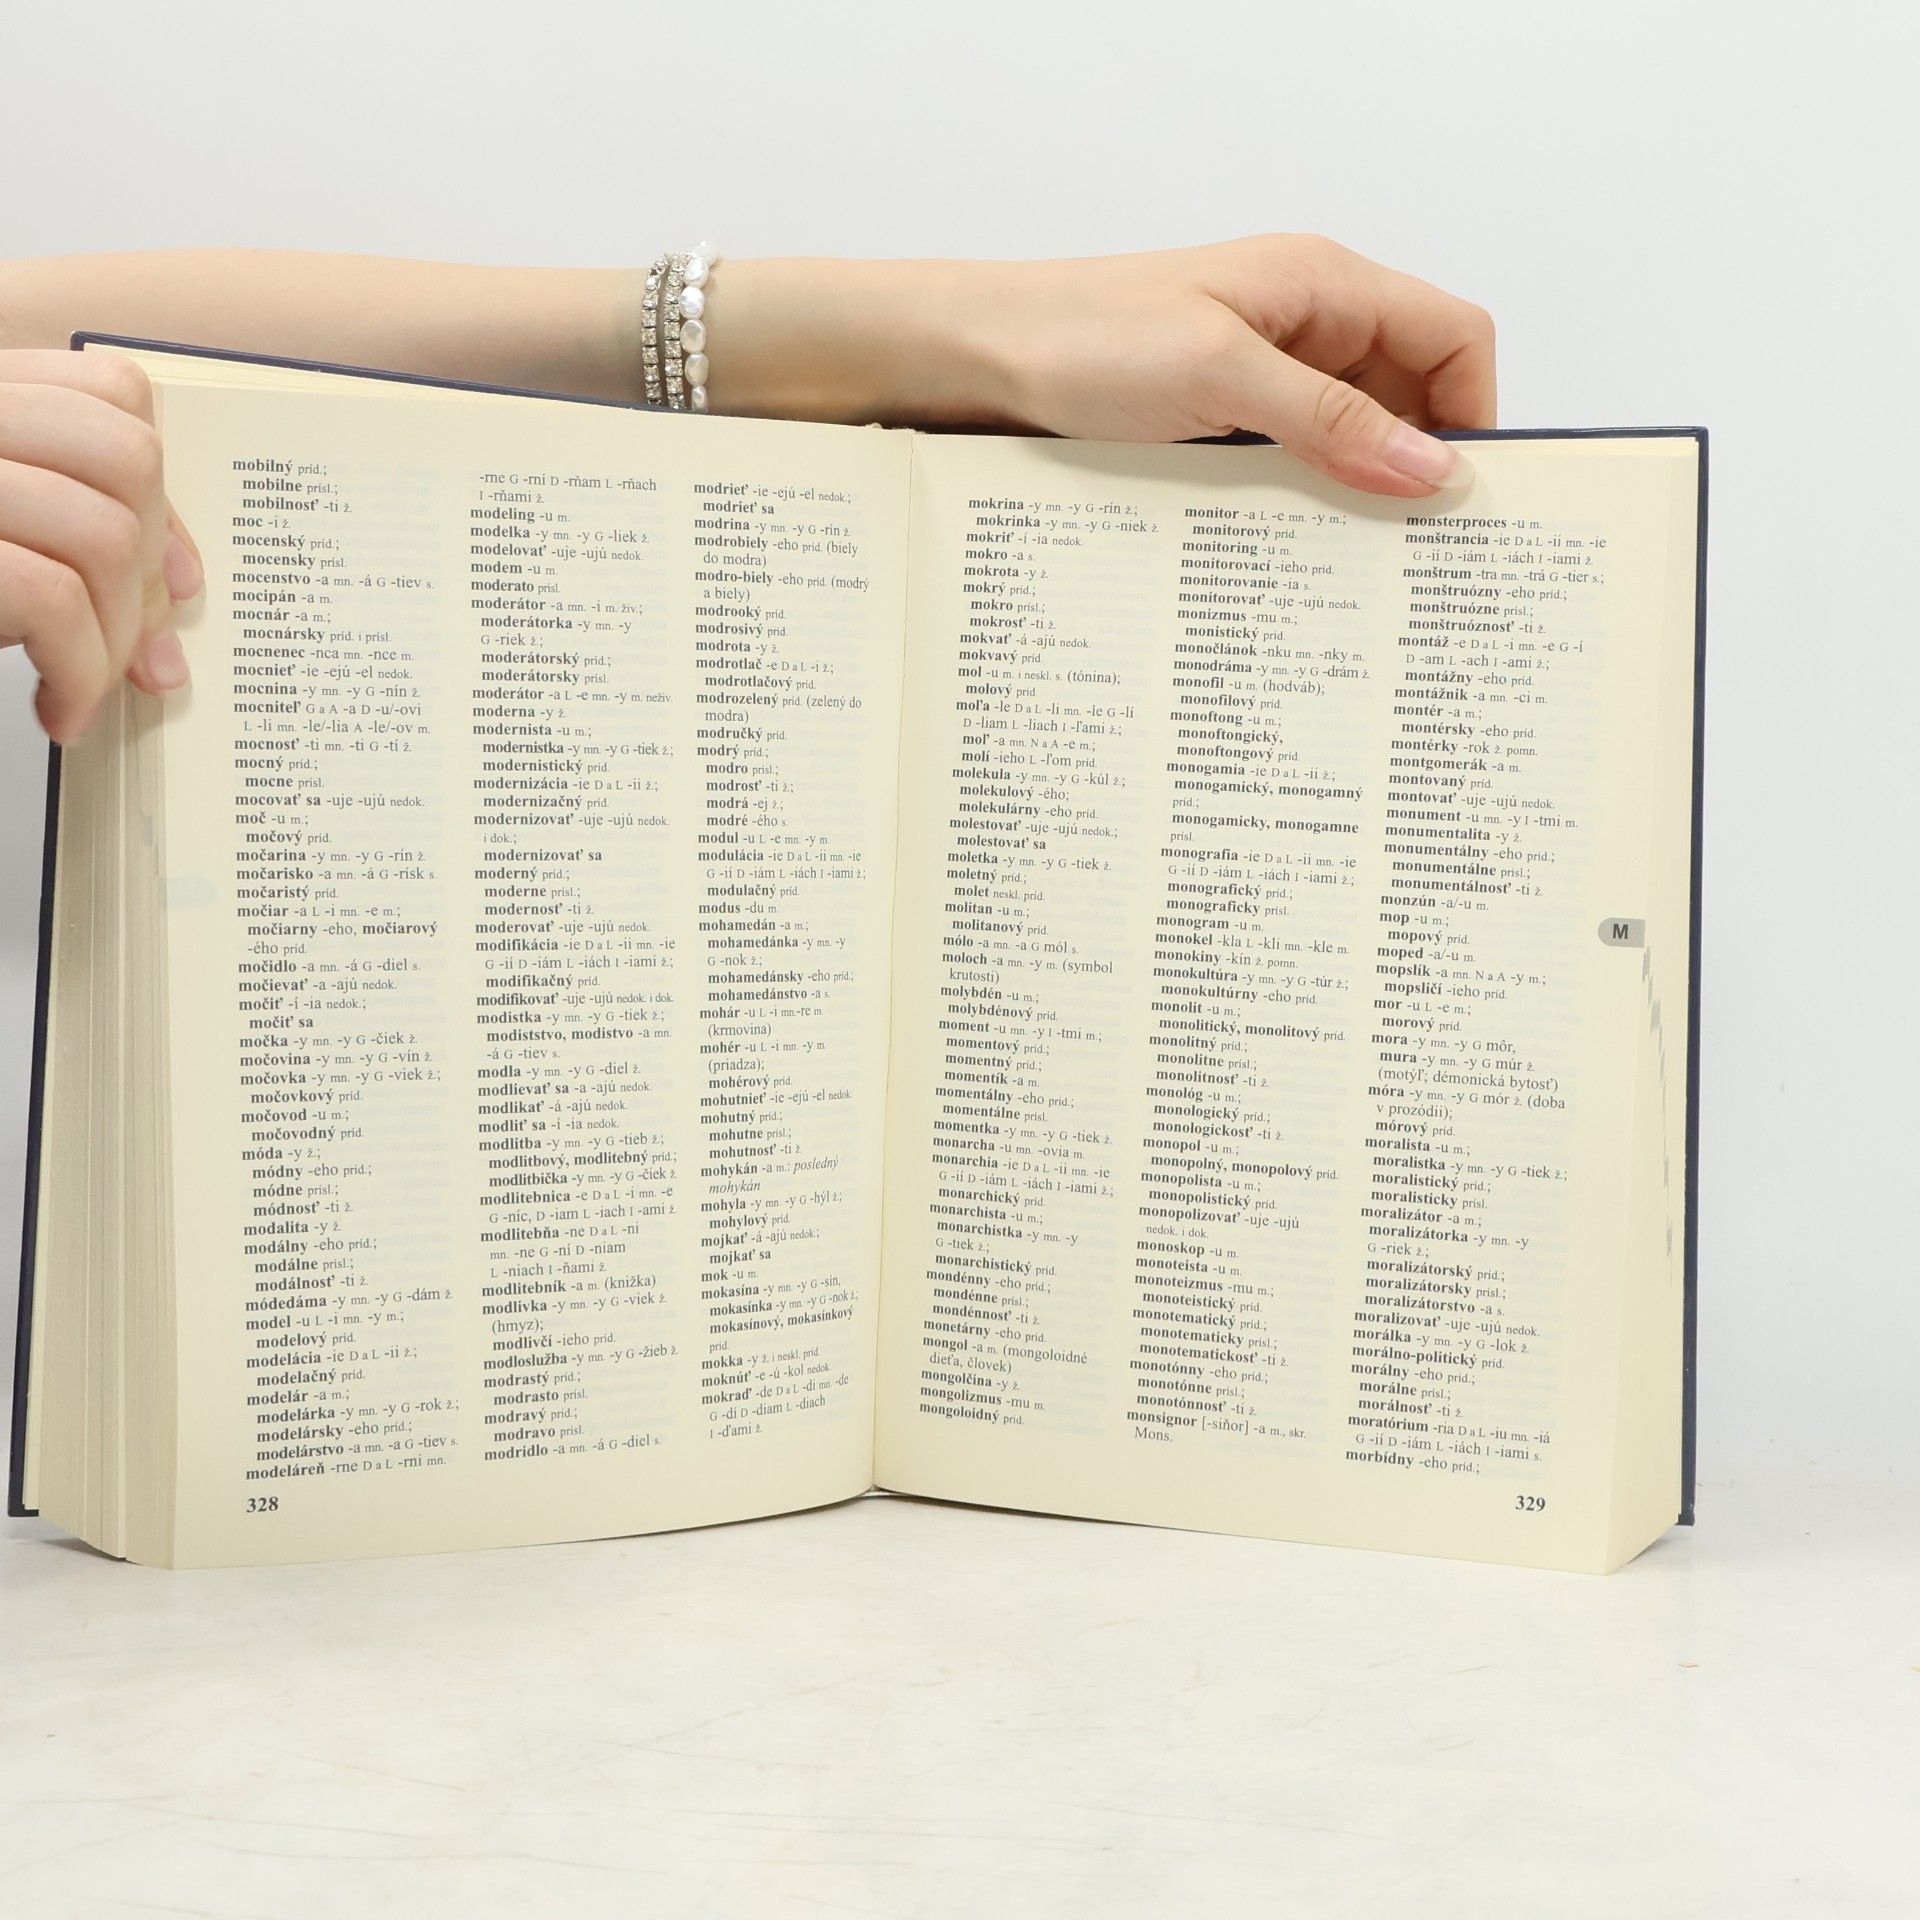 mobilný príd.;
mobilne prísl.;
mobilnosť -ti ž.
moc -i ž.
mocenský príd.;
mocensky prísl.
mocenstvo -a mn. -á G -tiev s.
mocipán -a m.
mocnár -a m.;
mocnársky príd. i prísl.
mocnenec -nca mn. -nce m.
mocnieť -ie -ejú -el nedok.
mocnina -y mn. -y G -nín ž.
mocniteľ G a A -a D -u/-ovi
L -li mn. -le/-lia A -le/-ov m.
mocnosť -ti mn. -ti G -tí ž.
mocný príd.;
mocne prísl.
mocovať sa -uje -ujú nedok.
moč -u m.;
močový príd.
močarina -y mn. -y G -rín ž.
močarisko -a mn. -á G -rísk s.
močaristý príd.
močiar -a L -i mn. -e m.;
močiarny -eho, močiarový
-ého príd.
močidlo -a mn. -á G -diel s.
močievať -a -ajú nedok.
močiť -í -ia nedok.;
močiť sa
močka -y mn. -y G -čiek ž.
močovina -y mn. -y G -vín ž.
močovka -y mn. -y G -viek ž.;
močovkový príd.
močovod -u m.;
močovodný príd.
móda -y ž.;
módny -eho príd.;
módne prísl.;
módnosť -ti ž.
modalita -y ž.
modálny -eho príd.;
modálne prísl.;
modálnosť -ti ž.
módedáma -y mn. -y G -dám ž.
model -u L -i mn. -y m.;
modelový príd.
modelácia -ie D a L -ii ž.;
modelačný príd.
modelár -a m.;
modelárka -y mn. -y G -rok ž.;
modelársky -eho príd.;
modelárstvo -a mn. -a G -tiev s.
modeláreň -rne D a L -rni mn.
328
-rne G -rní D -rňam L -rňach
I -rňami ž.
modeling -u m.
modelka -y mn. -y G -liek ž.
modelovať -uje -ujú nedok.
modem -u m.
moderato prísl.
moderátor -a mn. -i m. živ.;
moderátorka -y mn. -y
G -riek ž.;
moderátorský príd.;
moderátorsky prísl.
moderátor -a L -e mn. -y m. neživ.
moderna -y ž.
modernista -u m.;
modernistka -y mn. -y G -tiek ž.;
modernistický príd.
modernizácia -ie D a L -ii ž.;
modernizačný príd.
modernizovať -uje -ujú nedok.
i dok.;
modernizovať sa
moderný príd.;
moderne prísl.;
modernosť -ti ž.
moderovať -uje -ujú nedok.
modifikácia -ie D a L -ii mn. -ie
G -ií D -iám L -iách I -iami ž.;
modifikačný príd.
modifikovať -uje -ujú nedok. i dok.
modistka -y mn. -y G -tiek ž.;
modiststvo, modistvo -a mn.
-á G -tiev s.
modla -y mn. -y G -diel ž.
modlievať sa -a -ajú nedok.
modlikať -á -ajú nedok.
modliť sa -í -ia nedok.
modlitba -y mn. -y G -tieb ž.;
modlitbový, modlitebný príd.;
modlitbička -y mn. -y G -čiek ž.
modlitebnica -e D a L -i mn. -e
G -níc, D -iam L -iach I -ami ž.
modlitebňa -ne D a L -ni
mn. -ne G -ní D -niam
L -niach I -ňami ž.
modlitebník -a m. (knižka)
modlivka -y mn. -y G -viek ž.
(hmyz);
modlivčí -ieho príd.
modloslužba -y mn. -y G -žieb ž.
modrastý príd.;
modrasto prísl.
modravý príd.;
modravo prísl.
modridlo -a mn. -á G -diel s.
modrieť -ie -ejú -el nedok.;
modrieť sa
modrina -y mn. -y G -rín ž.
modrobiely -eho príd. (biely
do modra)
modro-biely -eho príd. (modrý
a biely)
modrooký príd.
modrosivý príd.
modrota -y ž.
modrotlač -e D a L -i ž.;
modrotlačový príd.
modrozelený príd. (zelený do
modra)
modručký príd.
modrý príd.;
modro prísl.;
modrosť -ti ž.;
modrá -ej ž.;
modré -ého s.
modul -u L -e mn. -y m.
modulácia -ie D a L -ii mn. -ie
G -ií D -iám L -iách I -iami ž.;
modulačný príd.
modus -du m.
mohamedán -a m.;
mohamedánka -y mn. -y
G -nok ž.;
mohamedánsky -eho príd.;
mohamedánstvo -a s.
mohár -u L -i mn.-re m.
(krmovina)
mohér -u L -i mn. -y m.
(priadza);
mohérový príd.
mohutnieť -ie -ejú -el nedok.
mohutný príd.;
mohutne prísl.;
mohutnosť -ti ž.
mohykán -a m.: posledný
mohykán
mohyla -y mn. -y G -hýl ž.;
mohylový príd.
mojkať -á -ajú nedok.;
mojkať sa
mok -u m.
mokasína -y mn. -y G -sín,
mokasínka -y mn. -y G -nok ž.;
mokasínový, mokasínkový
príd.
mokka -y ž. i neskl. príd.
moknúť -e -ú -kol nedok.
mokraď -de D a L -di mn. -de
G -dí D -diam L -diach
I -ďami ž.
mokrina -y mn. -y G -rín ž.;
mokrinka -y mn. -y G -niek ž.
mokriť -í -ia nedok.
mokro -a s.
mokrota -y ž.
mokrý príd.;
mokro prísl.;
mokrosť -ti ž.
mokvať -á -ajú nedok.
mokvavý príd.
mol -u m. i neskl. s. (tónina);
molový príd.
moľa -le D a L -li mn. -le G -lí
D -liam L -liach I -ľami ž.;
moľ -a mn. N a A -e m.;
molí -ieho L -ľom príd.
molekula -y mn. -y G -kúl ž.;
molekulový -ého;
molekulárny -eho príd.
molestovať -uje -ujú nedok.;
molestovať sa
moletka -y mn. -y G -tiek ž.
moletný príd.;
molet neskl. príd.
molitan -u m.;
molitanový príd.
mólo -a mn. -a G mól s.
moloch -a mn. -y m. (symbol
krutosti)
molybdén -u m.;
molybdénový príd.
moment -u mn. -y I -tmi m.;
momentový príd.;
momentný príd.;
momentík -a m.
momentálny -eho príd.;
momentálne prísl.
momentka -y mn. -y G -tiek ž.
monarcha -u mn. -ovia m.
monarchia -ie D a L -ii mn. -ie
G -ií D -iám L -iách I -iami ž.;
monarchický príd.
monarchista -u m.;
monarchistka -y mn. -y
G -tiek ž.;
monarchistický príd.
mondénny -eho príd.;
mondénne prísl.;
mondénnosť -ti ž.
monetárny -eho príd.
mongol -a m. (mongoloidné
dieťa, človek)
mongolčina -y ž.
mongolizmus -mu m.
mongoloidný príd.
monitor -a L -e mn. -y m.;
monitorový príd.
monitoring -u m.
monitorovací -ieho príd.
monitorovanie -ia s.
monitorovať -uje -ujú nedok.
monizmus -mu m.;
monistický príd.
monočlánok -nku mn. -nky m.
monodráma -y mn. -y G -drám ž.
monofil -u m. (hodváb);
monofilový príd.
monoftong -u m.;
monoftongický,
monoftongový príd.
monogamia -ie D a L -ii ž.;
monogamický, monogamný
príd.;
monogamicky, monogamne
prísl.
monografia -ie D a L -ii mn. -ie
G -ií D -iám L -iách I -iami ž.;
monografický príd.;
monograficky prísl.
monogram -u m.
monokel -kla L -kli mn. -kle m.
monokiny -kín ž. pomn.
monokultúra -y mn. -y G -túr ž.;
monokultúrny -eho príd.
monolit -u m.;
monolitický, monolitový príd.
monolitný príd.;
monolitne prísl.;
monolitnosť -ti ž.
monológ -u m.;
monologický príd.;
monologickosť -ti ž.
monopol -u m.;
monopolný, monopolový príd.
monopolista -u m.;
monopolistický príd.
monopolizovať -uje -ujú
nedok. i dok.
monoskop -u m.
monoteista -u m.
monoteizmus -mu m.;
monoteistický príd.
monotematický príd.;
monotematicky prísl.;
monotematickosť -ti ž.
monotónny -eho príd.;
monotónne prísl.;
monotónnosť -ti ž.
monsignor [-siňor] -a m., skr.
Mons.
monsterproces -u m.
monštrancia -ie D a L -ii mn. -ie
G -ií D -iám L -iách I -iami ž.
monštrum -tra mn. -trá G -tier s.;
monštruózny -eho príd.;
monštruózne prísl.;
monštruóznosť -ti ž.
montáž -e D a L -i mn. -e G -í
D -am L -ach I -ami ž.;
montážny -eho príd.
montážnik -a mn. -ci m.
montér -a m.;
montérsky -eho príd.
montérky -rok ž. pomn.
montgomerák -a m.
montovaný príd.
montovať -uje -ujú nedok.
monument -u mn. -y I -tmi m.
monumentalita -y ž.
monumentálny -eho príd.;
monumentálne prísl.;
monumentálnosť -ti ž.
monzún -a/-u m.
mop -u m.;
mopový príd.
moped -a/-u m.
mopslík -a mn. N a A -y m.;
mopsličí -ieho príd.
mor -u L -e m.;
morový príd.
mora -y mn. -y G môr,
mura -y mn. -y G múr ž.
(motýľ; démonická bytosť)
móra -y mn. -y G mór ž. (doba
v prozódii);
mórový príd.
moralista -u m.;
moralistka -y mn. -y G -tiek ž.;
moralistický príd.;
moralisticky prísl.
moralizátor -a m.;
moralizátorka -y mn. -y
G -riek ž.;
moralizátorský príd.;
moralizátorsky prísl.;
moralizátorstvo -a s.
moralizovať -uje -ujú nedok.
morálka -y mn. -y G -lok ž.
morálno-politický príd.
morálny -eho príd.;
morálne prísl.;
morálnosť -ti ž.
moratórium -ria D a L -iu mn. -iá
G -ií D -iám L -iách I -iami s.
morbídny -eho príd.;
M
329